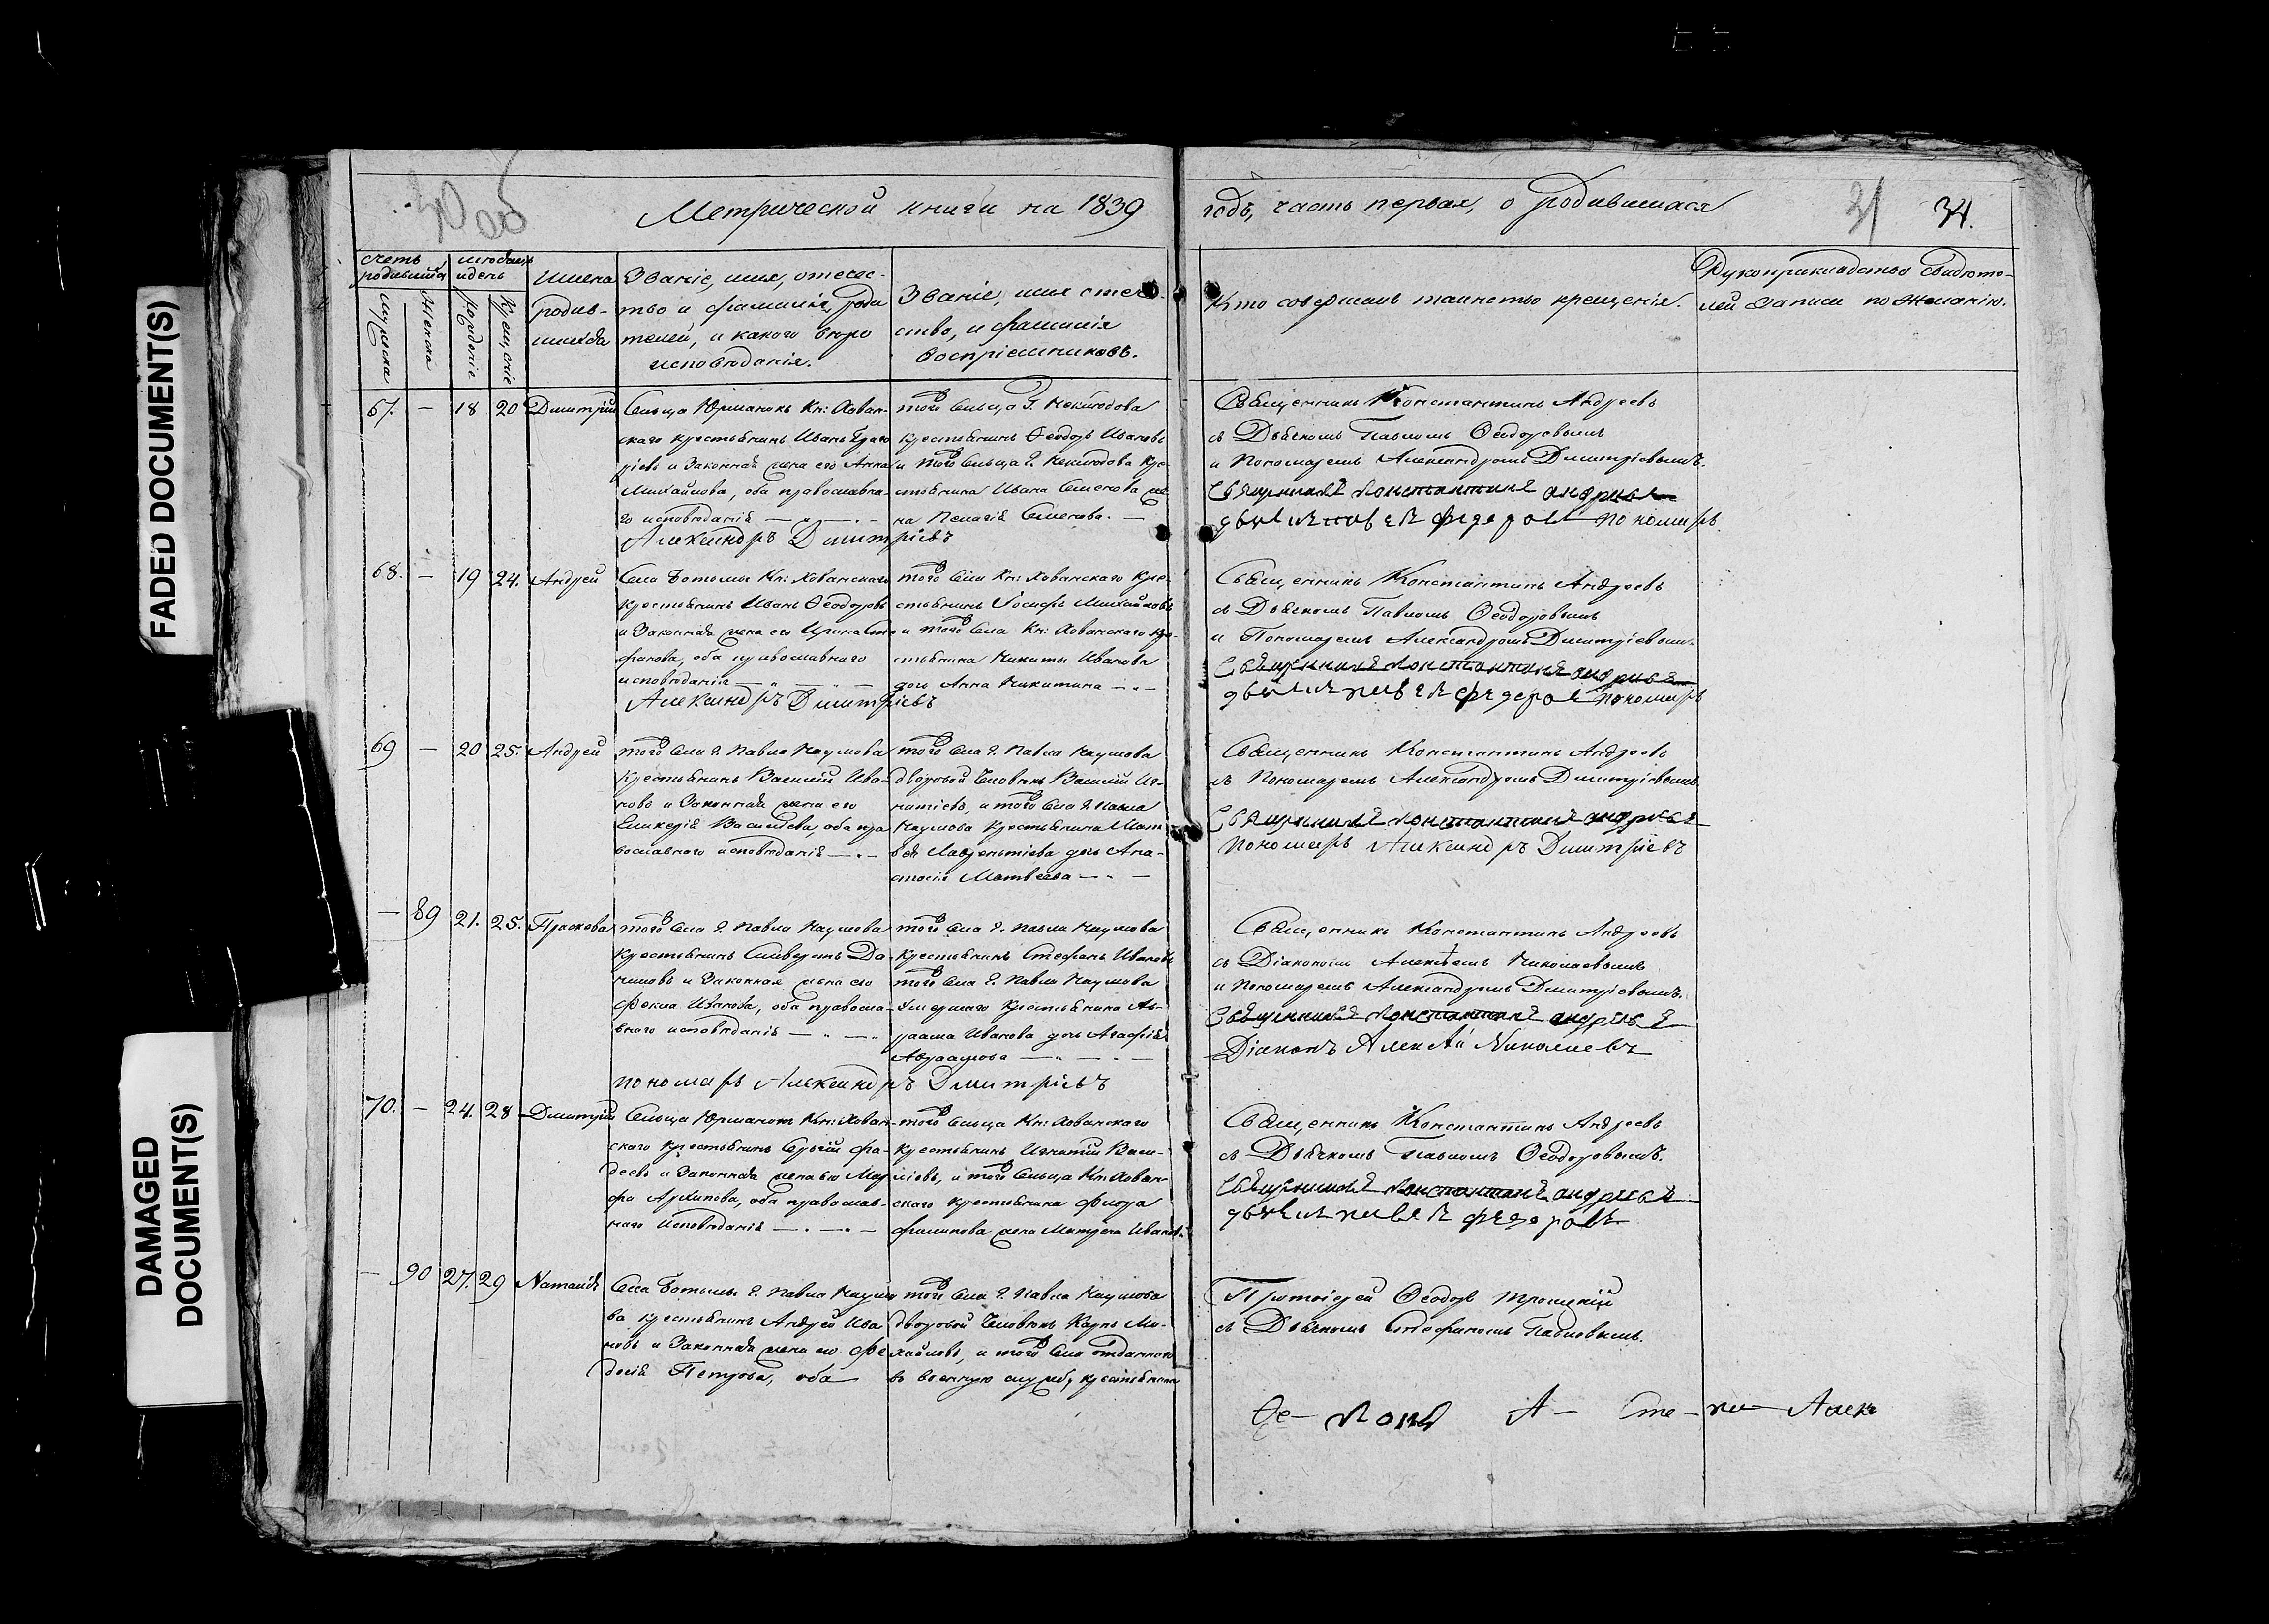 FADED DOCUMENT(S)
DAMAGED
DOCUMENT(S)
Метрической книги на 1839
годъ, часть первая, о родившихся
31 34.
счетъ родивших
мѣсяцъ и день
мужеска
женска
Рожденіе
Крещеніе
Имена
родив-
шихся
Званіе, имя, отечес-
тво и фамилія роди
телей, и какого вѣро
исповѣданія.
Званіе, имя отече-
ство, и фамилія
воспріемниковъ.
Кто совершалъ таинство крещенія.
Рукоприкладство свидѣте-
лей записи по желанію.
67. — 18 20 Дмитрій
Сельца Юрманокъ Кн: Хован-
скаго крестьянинъ Иванъ
и Законная жена его Анна
Михайлова, оба православна-
го исповѣданія
того Сельца Г. Неклюдова
крестьянинъ Ѳеодоръ Ивановъ
и того Сельца Г. Неклюдова кре
стьянина Ивана Семенова же
на Пелагія Семенова.
Священникъ Константинъ Андреевъ
съ Дьячкомъ Павломъ Ѳеодоровымъ
и Пономаремъ Александромъ Димитріевымъ.
Священникъ Константинъ Андреевъ
дьячекъ Павелъ Федоровъ Пономарь
Александръ Димитріевъ
68. — 19 24. Андрей
Села Ботьмы Кн: Хованскаго
крестьянинъ Иванъ Ѳеодоровъ
и Законная жена его Ирина Сте
фанова, оба православнаго
исповѣданія
того Села Кн: Хованскаго кре-
стьянинъ Іосифъ Михайловъ
и того Села Кн: Хованскаго кре-
стьянина Никиты Иванова
дочь Анна Никитина
Священникъ Константинъ Андреевъ
съ Дьячкомъ Павломъ Ѳеодоровымъ
и Пономаремъ Александромъ Димитріевымъ.
Священникъ Константинъ Андреевъ
дьячекъ Павелъ Федоровъ Пономарь
Александръ Димитріевъ
69 — 20 25. Андрей
того Села Г. Павла Наумова
крестьянинъ Василій Ива-
новъ и Законная жена его
Гликерія Васильева, оба пра
вославнаго исповѣданія
того Села Г. Павла Наумова
дворовой человѣкъ Василій Иг-
натіевъ, и того Села Г. Павла
Наумова крестьянина Мат
вѣя Лаврентіева дочь Ана-
стасія Матвѣева
Священникъ Константинъ Андреевъ
съ Пономаремъ Александромъ Димитріевымъ.
Священникъ Константинъ Андреевъ
Пономарь Александръ Димитріевъ
— 89 21. 25. Прасковья
того Села Г. Павла Наумова
крестьянинъ Да-
ниловъ и Законная жена его
Фекла Иванова, оба правосла-
внаго исповѣданія
того Села Г. Павла Наумова
крестьянинъ Стефанъ Ивановъ
того Села Г. Павла Наумова
умершаго крестьянина Ав-
раама Иванова дочь Агафія
Авраамова
Священникъ Константинъ Андреевъ
съ Діакономъ Алексѣемъ Николаевымъ
и Пономаремъ Александромъ Димитріевымъ.
Священникъ Константинъ Андреевъ
Діаконъ Алексѣй Николаевъ
пономарь Александръ Димитріевъ
70. — 24. 28 Дмитрій
Сельца Юрманокъ Кн: Хован-
скаго крестьянинъ Сергій Фа-
деевъ и Законная жена его Мар
фа Архипова, оба православ-
наго исповѣданія
того Сельца Кн: Хованскаго
крестьянинъ Игнатій Васи-
ліевъ, и того Сельца Кн: Хован-
скаго крестьянина Флора
Филипова жена Матрена Иванова
Священникъ Константинъ Андреевъ
съ Дьячкомъ Павломъ Ѳеодоровымъ.
Священникъ Константинъ Андреевъ
дьячекъ Павелъ Федоровъ
— 90 27. 29 Наталія
Села Ботьмы Г. Павла Наумо
ва крестьянинъ Андрей Ива
новъ и Законная жена его Фе
досія Петрова, оба
того Села Г. Павла Наумова
дворовой человѣкъ Карпъ Ми-
хайловъ, и того Села отданнаго
въ военную службу крестьянина
Протоіерей Ѳеодоръ Троицкій
съ Дьячкомъ Стефаномъ Павловымъ.
Ѳе— Конс А— Сте— Алек